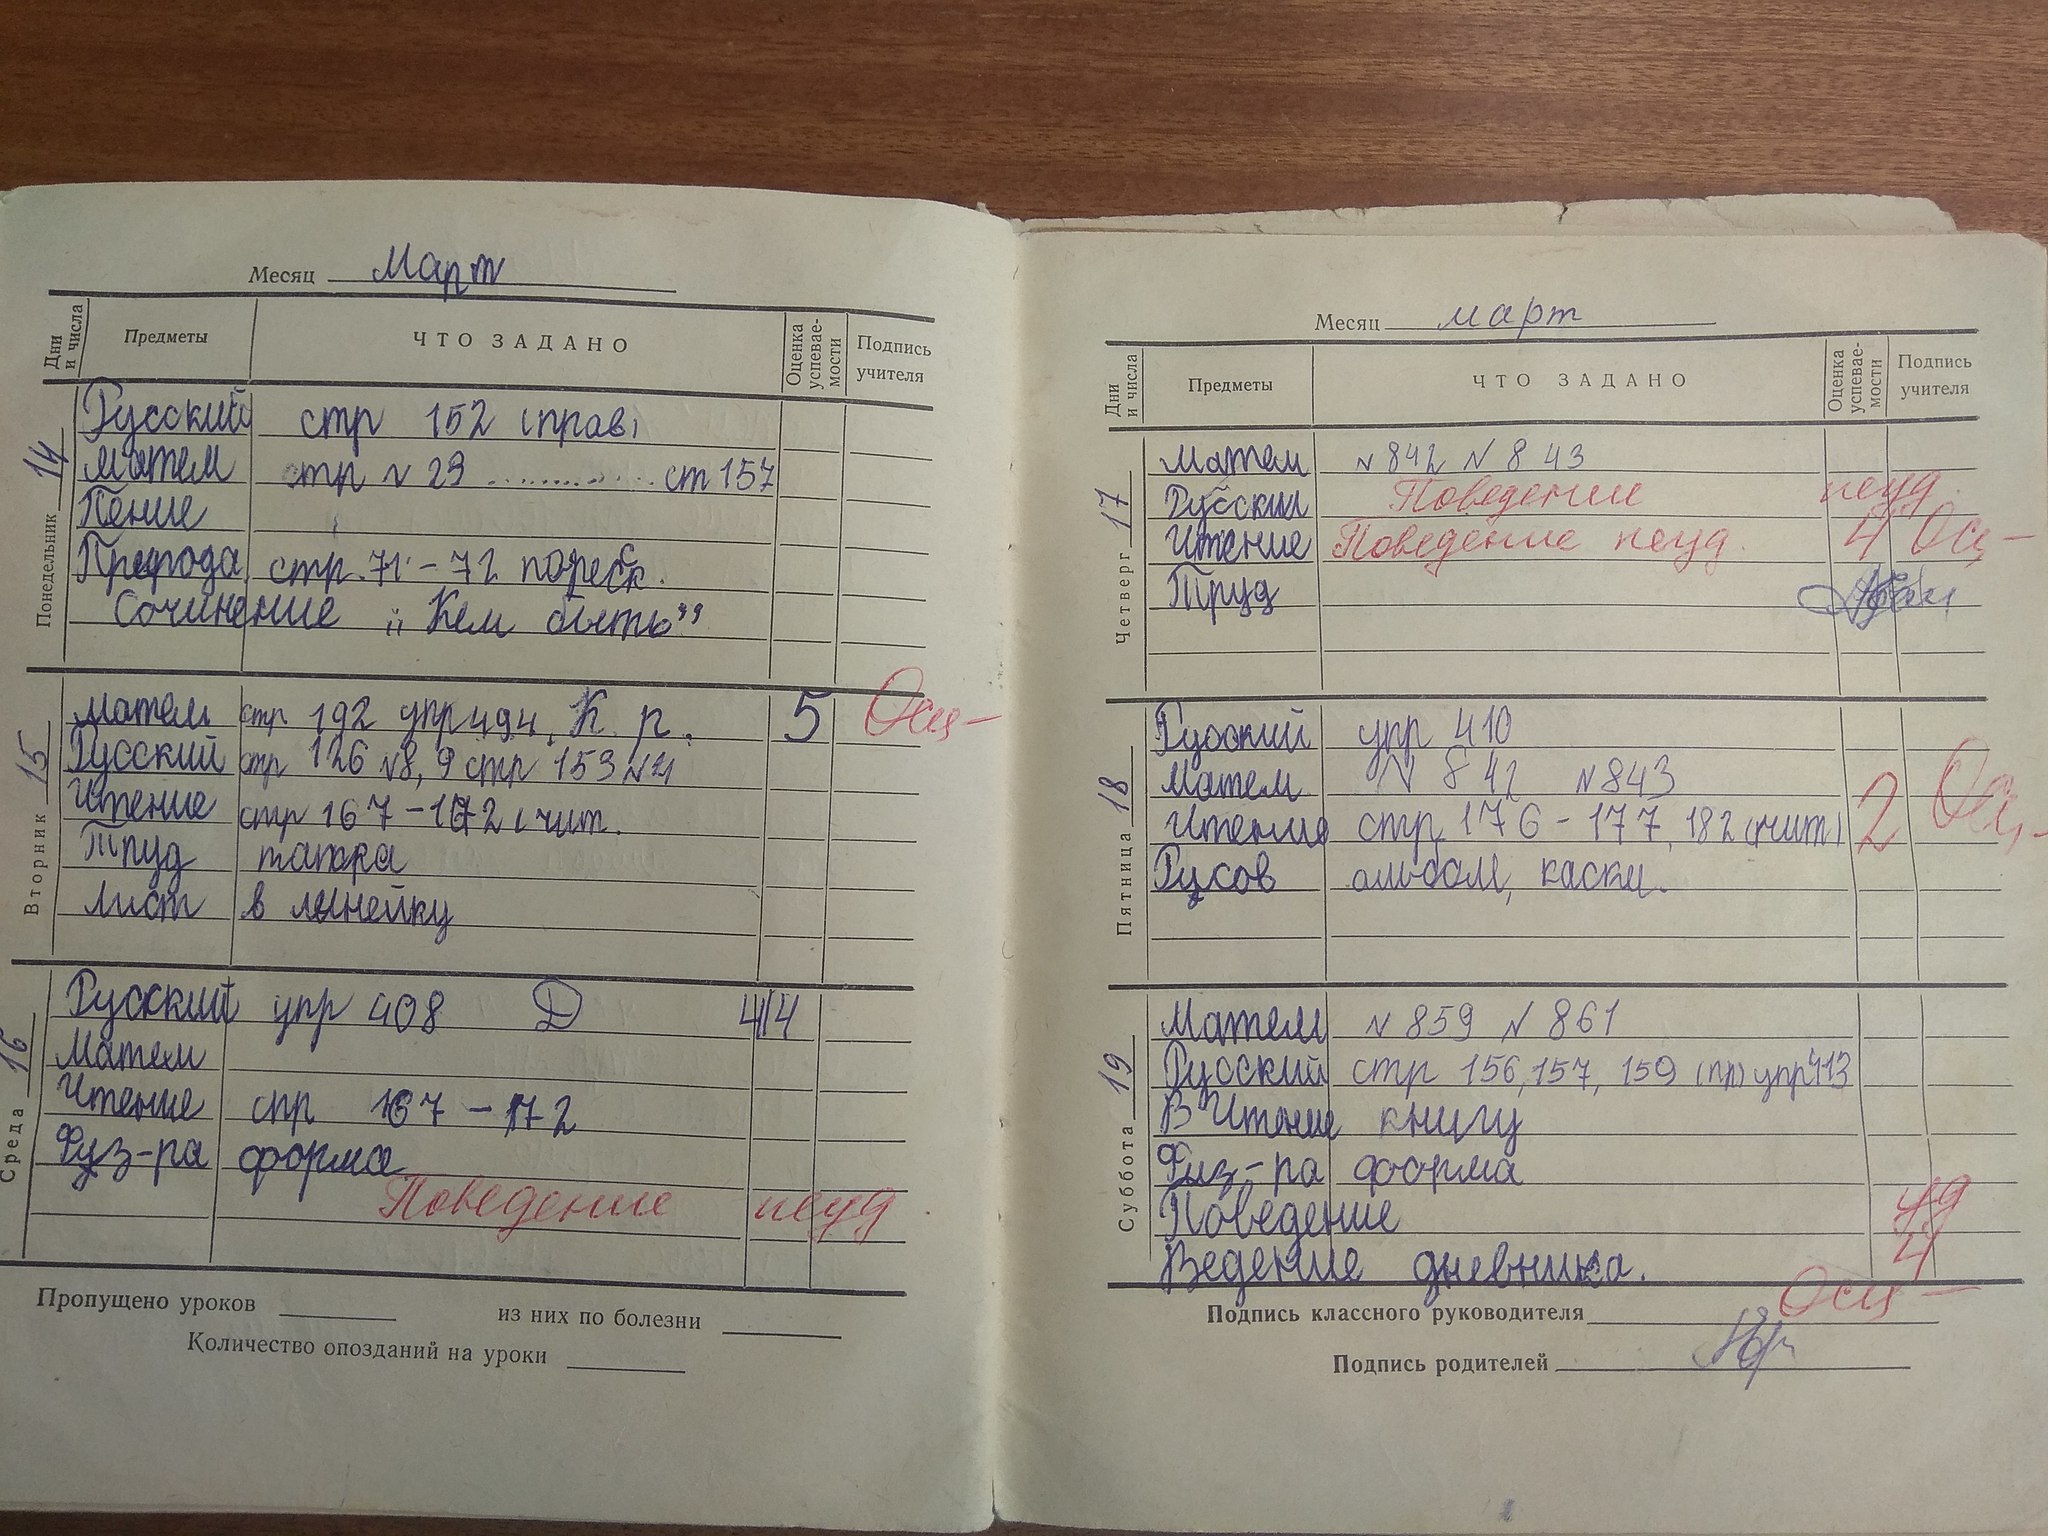 Месяц Март
Дни и числа Предметы ЧТО ЗАДАНО Оценка успевае- мости Подпись учителя
Понедельник 14
Русский стр 152 (прав)
Матем стр № 29 ............ ст 157
Пение
Преф​ода стр. 71 - 72 пореск.
Сочинение „Кем быть"
Вторник 15
Матем стр 192 упр 494. К. р. 5 Осц-
Русский стр 126 №8, 9 стр 153 №4
Чтение стр 167-172 (чит.
Труд папка
лист в линейку
Среда 16
Русский упр 408 Д 4/4
Матем
Чтение стр 167 - 172
Физ-ра форма
Поведение неуд.
Пропущено уроков из них по болезни
Количество опозданий на уроки
Месяц март
Дни и числа Предметы ЧТО ЗАДАНО Оценка успевае- мости Подпись учителя
Четверг 17
Матем № 842 № 843
Русский Поведение неуд.
Чтение Поведение неуд. 4 Осц-
Труд
Пятница 18
Русский упр 410
Матем № 842 № 843
Чтение стр 176-177, 182 (чит) 2 Осц-
Рисов альбом, каски.
Суббота 19
Матем № 859 № 861
Русский стр 156, 157, 159 (пр) упр 413
В Чтение книгу
Физ-ра форма
Поведение уд
Ведение дневника. 4
Подпись классного руководителя Осц-
Подпись родителей